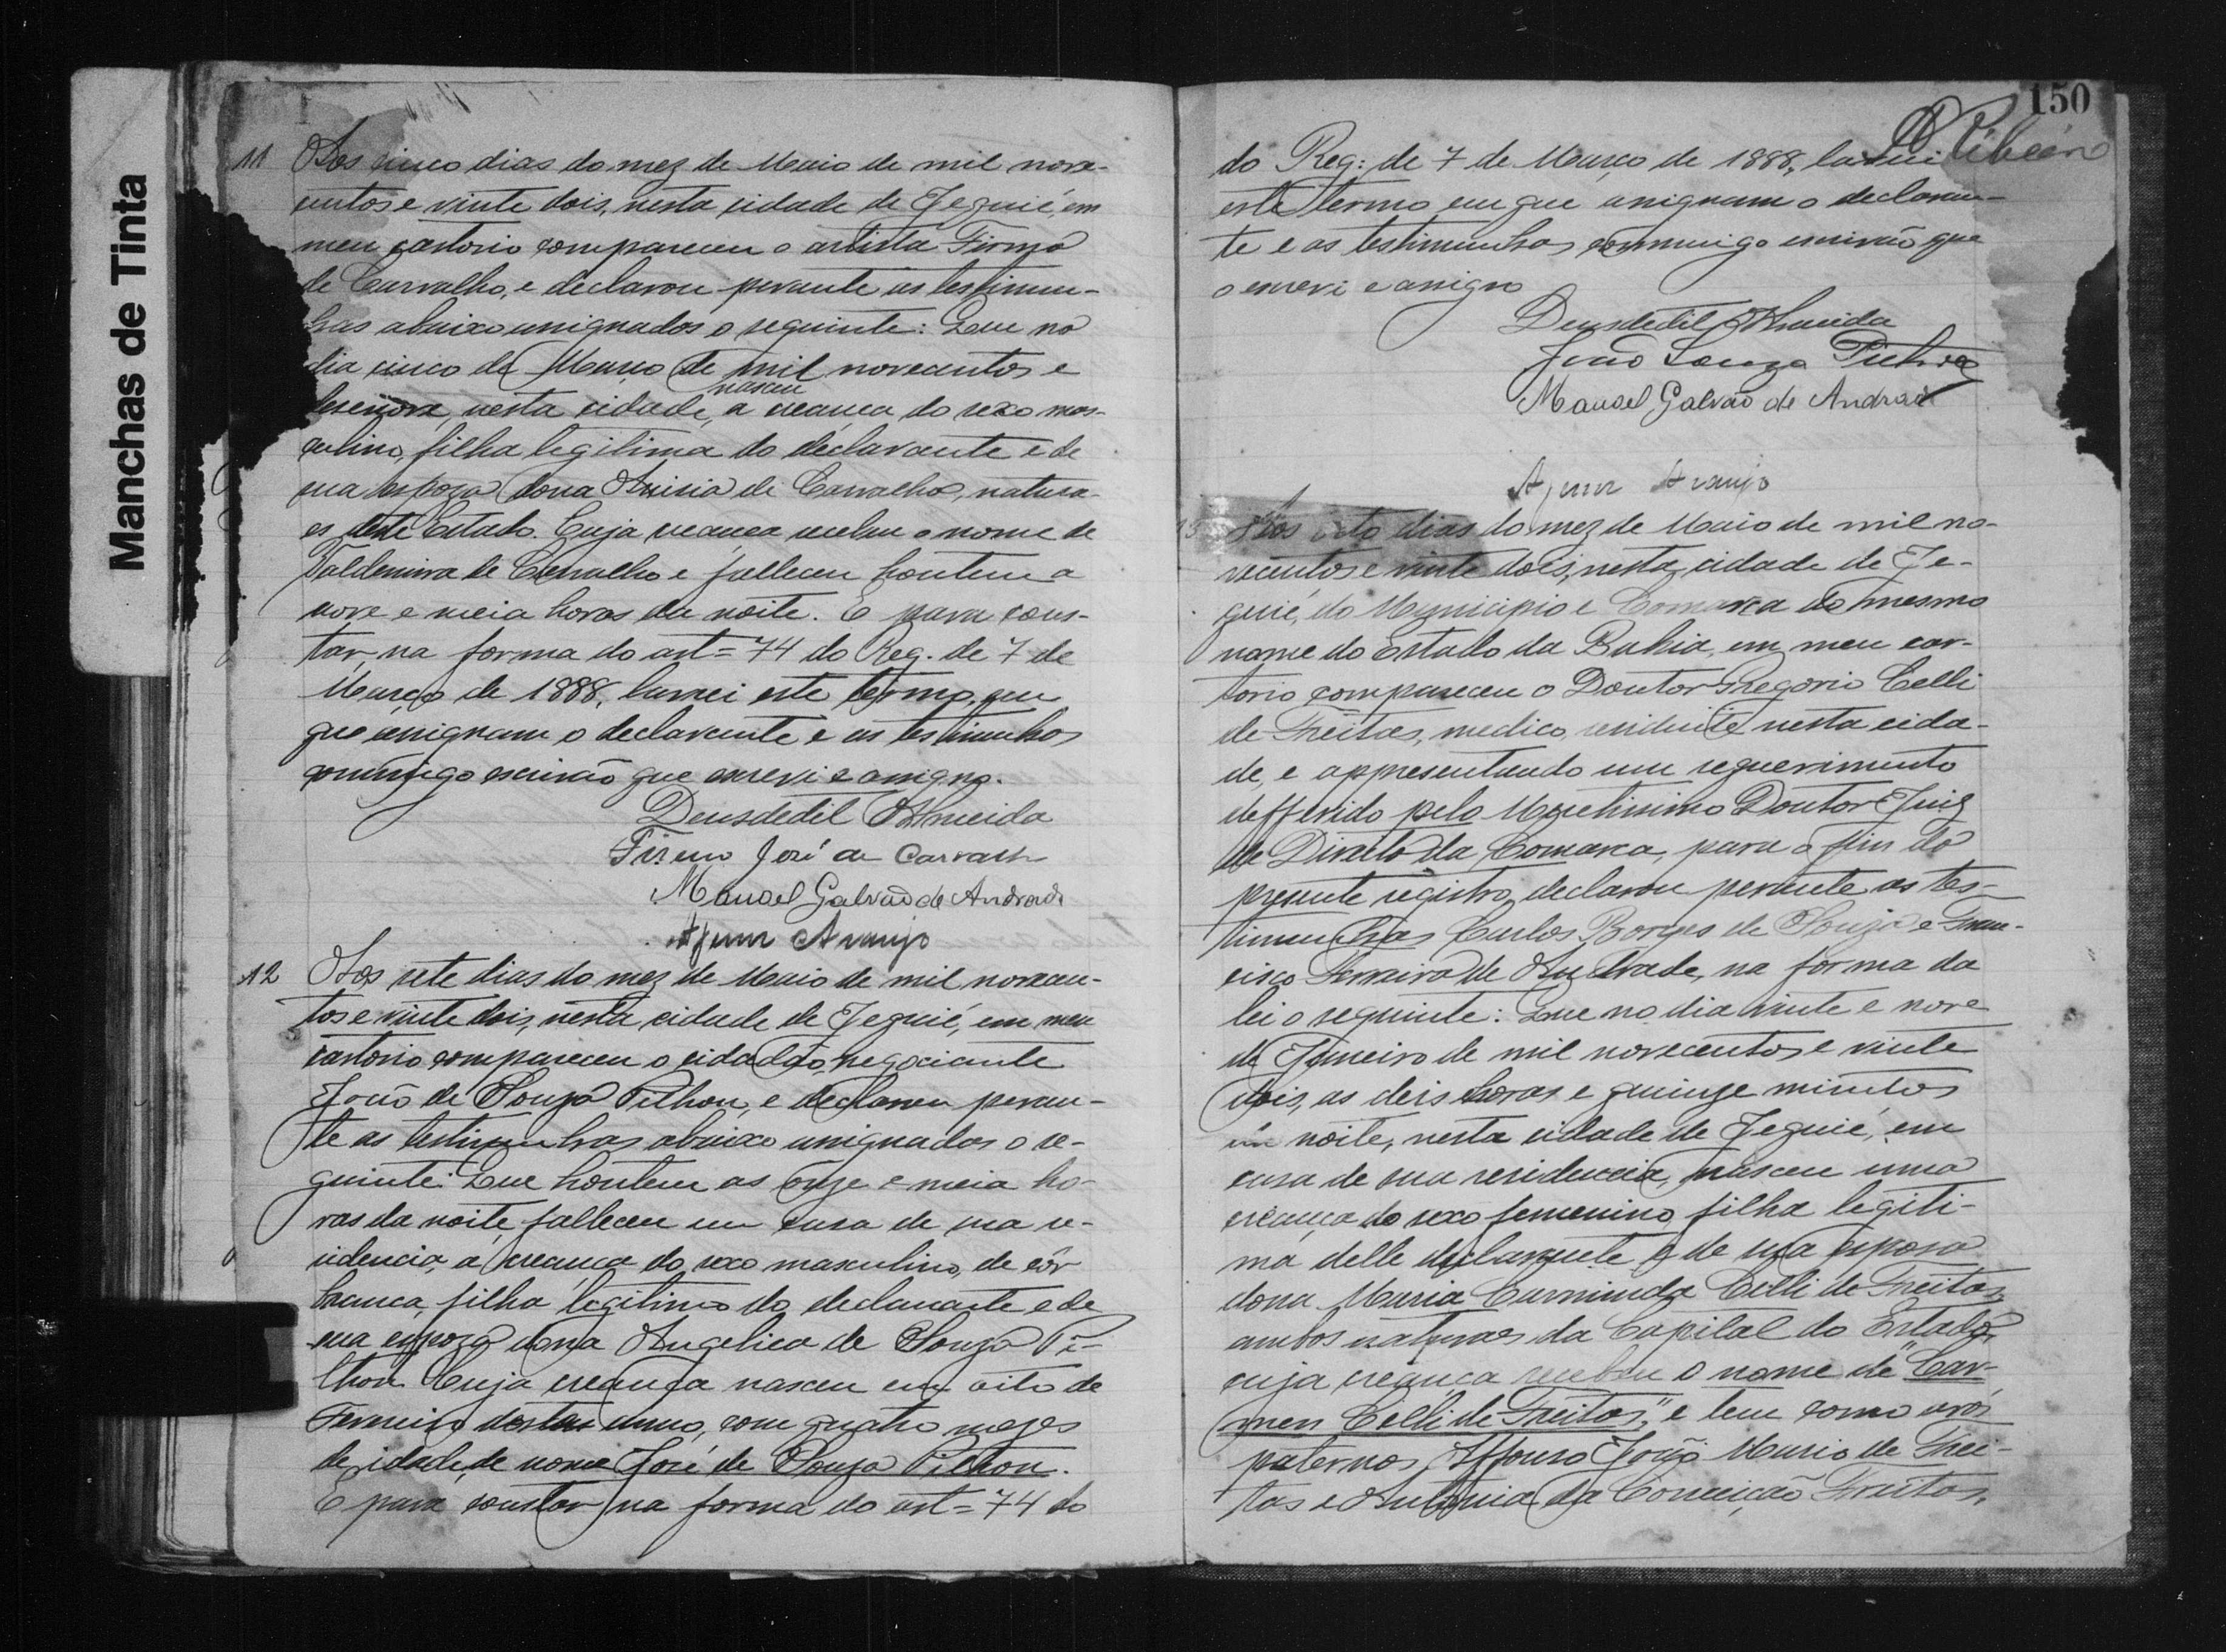 Manchas de Tinta
11 Aos cinco dias do mez de Maio de mil nove-
centos e vinte dois, nesta cidade de Jequié, em
meu cartorio compareceu o artista Firmo
de Carvalho, e declarou perante as testimun-
has abaixo assignados o seguinte: Que no
dia cinco de Março de mil novecentos e
nasceu
desenove, nesta cidade, a creança do sexo mas-
culino, filha legitima do declarante e de
sua espoza dona Anisia de Carvalho, natura-
es deste Estado. Cuja creança recebeu o nome de
Valdemira de Carvalho e falleceu hontem a
nove e meia horas da noite. E para cons-
tar, na forma do art = 74 do Reg. de 7 de
Março de 1888, lavrei este termo, em
que assignam o declarante e as testimunhas
commigo escrivão que escrevi e assigno.
Deusdedit Almeida
Firmo José de Carvalh
Manoel Galvão de Andrade
Araujo
12 Aos sete dias do mez de Maio de mil novecen-
tos e vinte dois, nesta cidade de Jequié, em meu
cartorio compareceu o cidadão, negociante
João de Souza Pithon, e declarou peran-
te as testimunhas abaixo assignados o se-
guinte: Que hontem as onze e meia ho-
ras da noite, falleceu em casa de sua re-
sidencia, a creança do sexo masculino, de côr
branca, filha legitima do declarante e de
sua espoza dona Angelica de Souza Pi-
thon. Cuja creança nasceu em oito de
Janeiro deste anno, com quatro mezes
de idade, de nome José de Souza Pithon.
E para constar, na forma do art = 74 do
150
do Reg: de 7 de Março de 1888, lavrei
este termo em que assignam o declaran-
te e as testimunhas commigo escrivão que
o escrevi e assigno
Deusdedit Almeida
João Souza Pithon
Manoel Galvão de Andrade
Araujo
13 Aos oito dias do mez de Maio de mil no-
vecentos e vinte dois, nesta cidade de Je-
quié, do Municipio e Comarca do mesmo
nome do Estado da Bahia, em meu car-
torio compareceu o Doutor Gregorio Celli
de Freitas, medico, residente nesta cida-
de, e appresentando um requerimento
defferido pelo Meretissimo Doutor Juiz
de Direito da Comarca, para o fim do
presente registro, declarou perante as tes-
timunhas Carlos Borges de Souza e Fran-
cisco Ferreira de Andrade, na forma da
lei o seguinte: Que no dia vinte e nove
de Janeiro de mil novecentos e vinte
dois, as deis horas e quinze minutos
da noite, nesta cidade de Jequié, em
casa de sua residencia, nasceu uma
creança do sexo femenino, filha legiti-
ma delle declarante e de sua esposa
dona Maria Carminda Celli de Freitas,
ambos naturaes da Capital do Estado,
cuja creança recebeu o nome de "Car-
men Celli de Freitas," e tem como avós
paternos, Affonso João Maria de Frei-
tas e Antonia da Conceição Freitas,